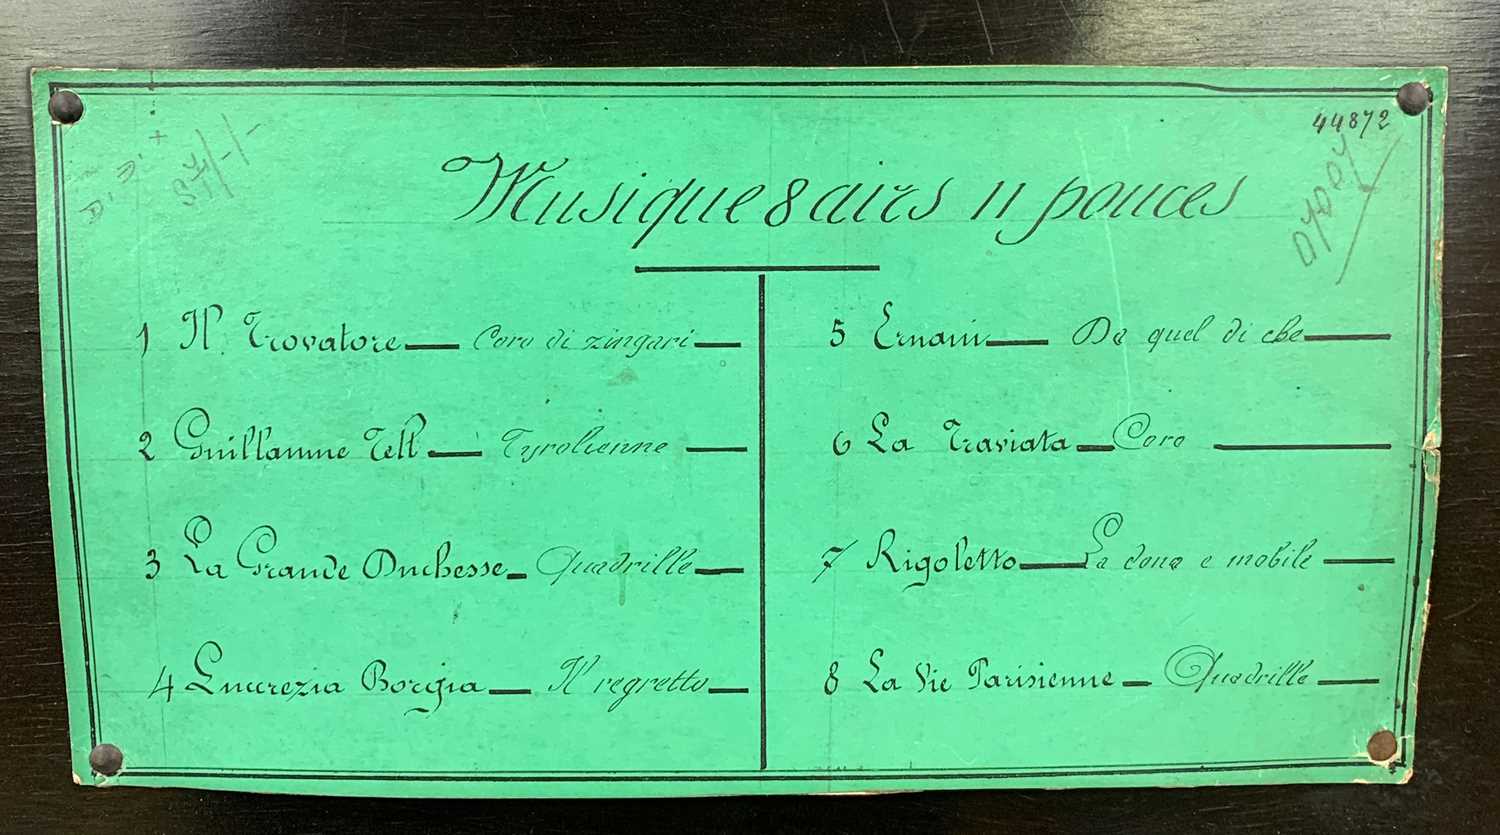 44872
Musique 8 airs 11 pouces
1 Il Trovatore — Coro di zingari —
2 Guillaume Tell — Tyrolienne —
3 La Grande Duchesse — Quadrille —
4 Lucrezia Borgia — Il regretto —
5 Ernani — Da quel di che —
6 La Traviata — Coro —
7 Rigoletto — La dona e mobile —
8 La Vie Parisienne — Quadrille —